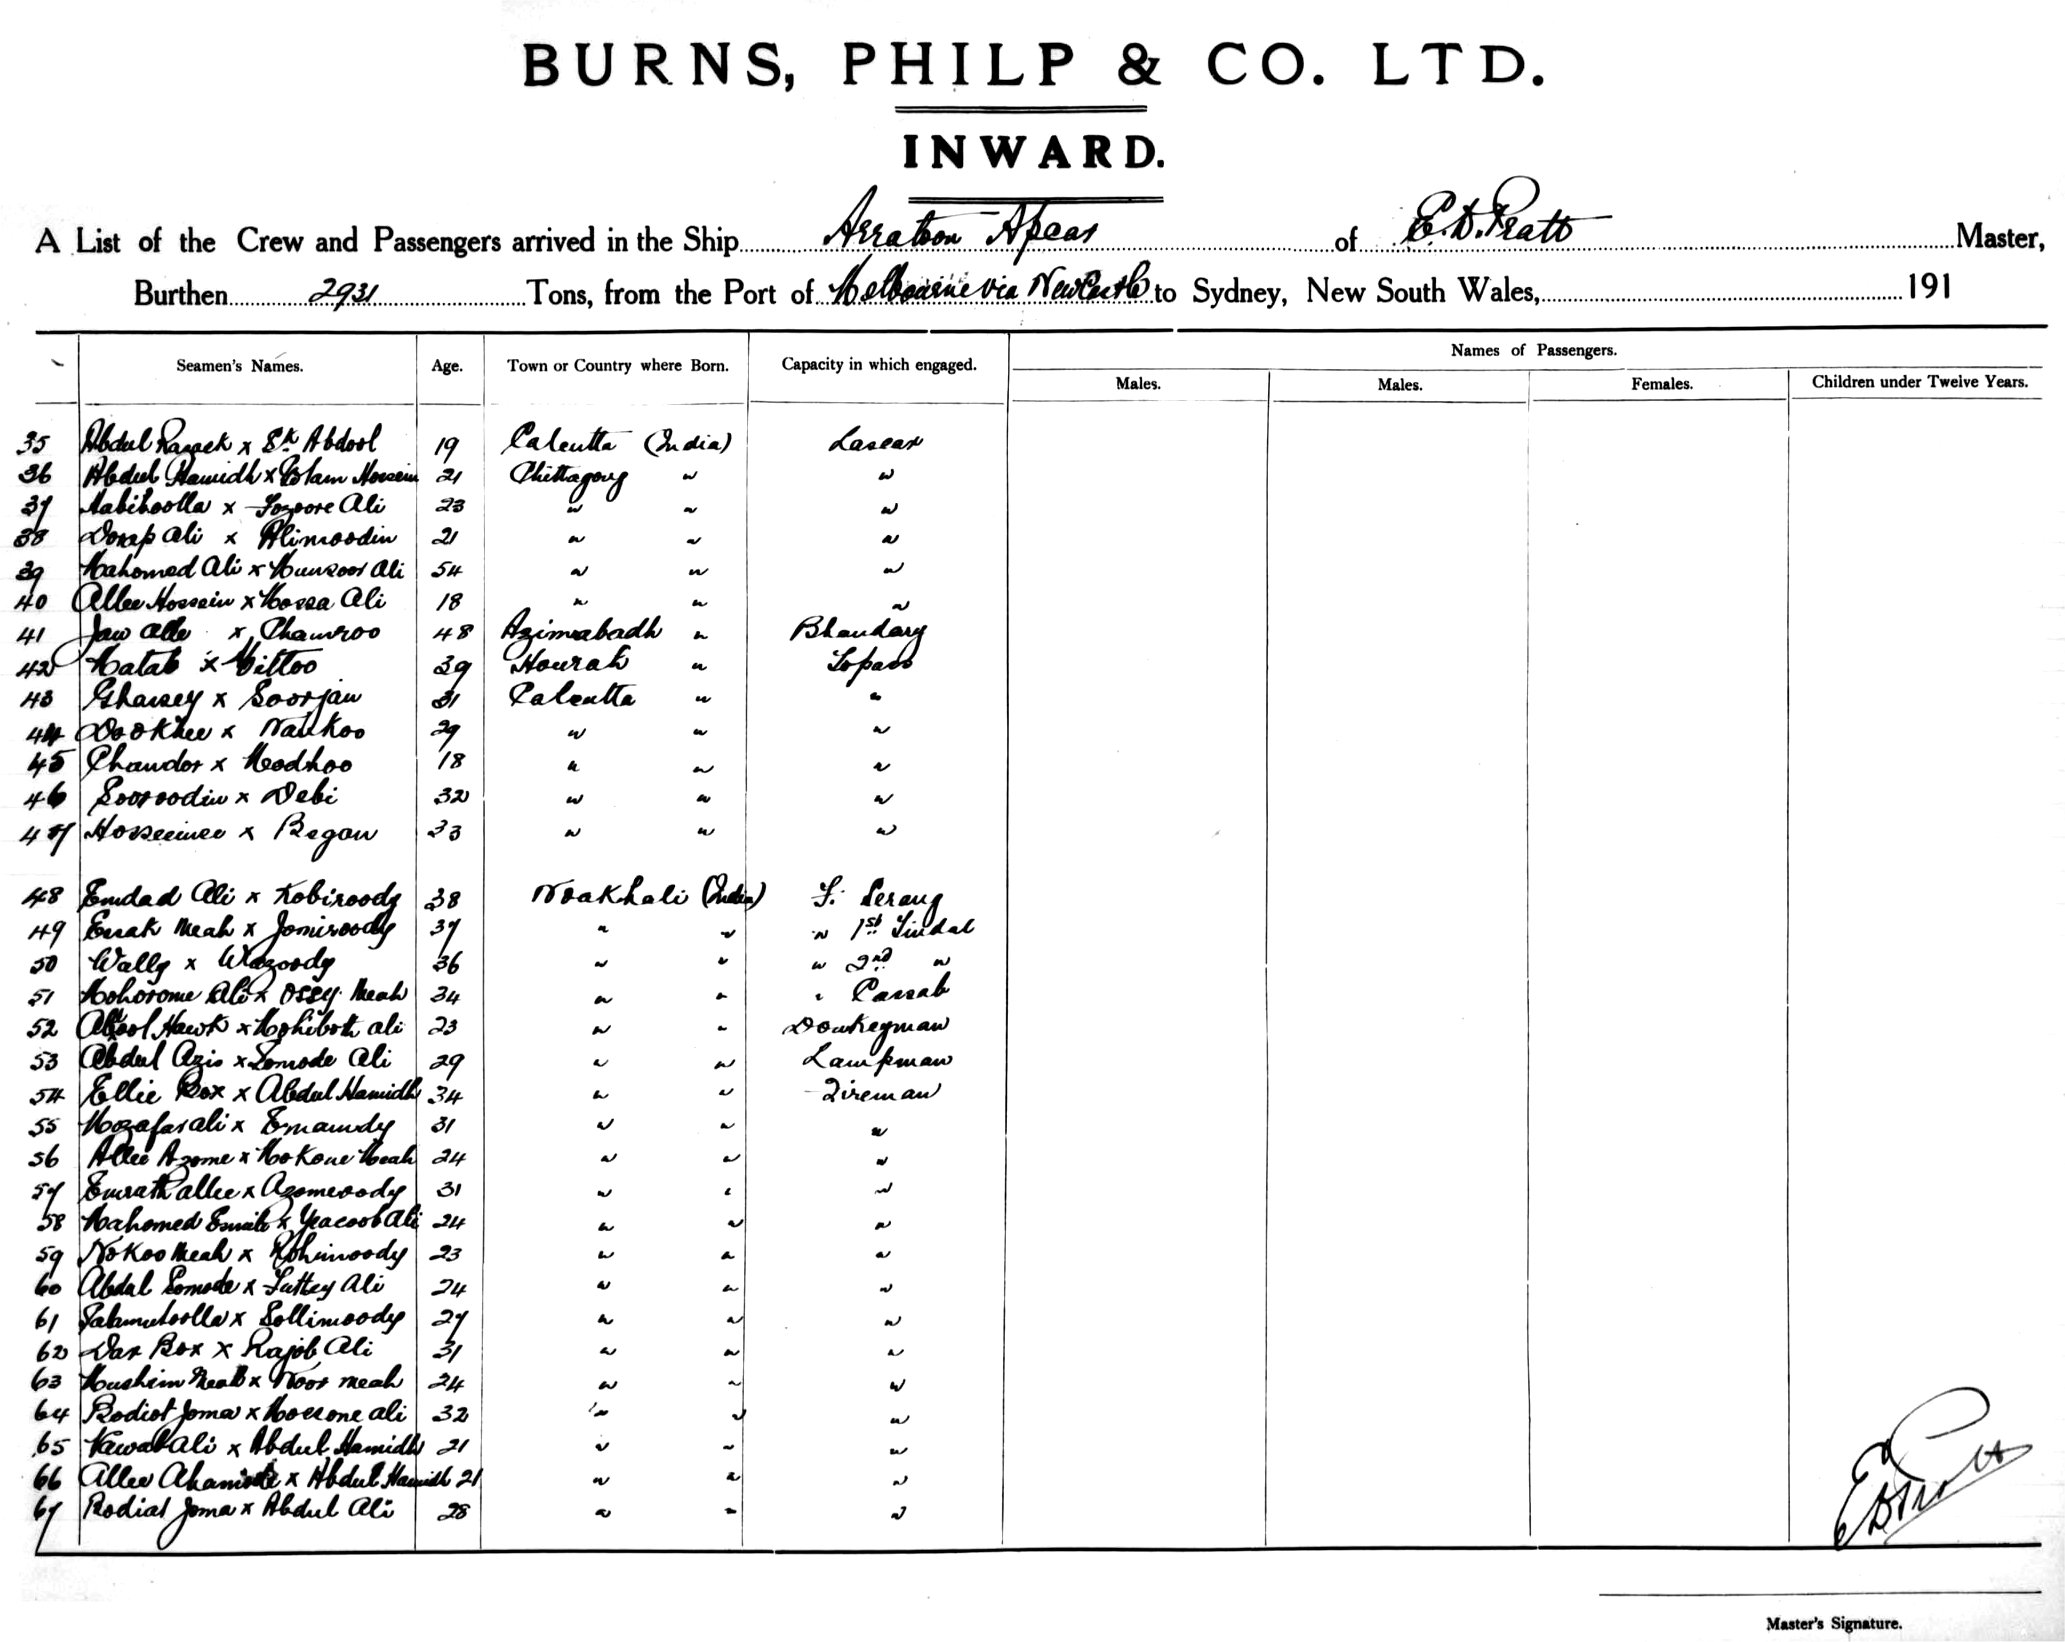 BURNS, PHILP & CO. LTD.
INWARD.
A List of the Crew and Passengers arrived in the Ship Arratoon Apcar of E. D. Pratt Master,
Burthen 2931 Tons, from the Port of Melbourne via Newcastle to Sydney, New South Wales, 191
Names of Passengers.
Seamen's Names. Age. Town or Country where Born. Capacity in which engaged. Males. Males. Females. Children under Twelve Years.
35 Abdul Razack x Sk Abdool 19 Calcutta (India) Lascar
36 Abdul Hamidh x Golam Hossein 21 Chittagong " "
37 Habiboolla x Fozoore Ali 23 " " "
38 Dorap Ali x Alimoodin 21 " " "
39 Mahomed Ali x Munsoor Ali 54 " " "
40 Allee Hossein x Mossa Ali 18 " " "
41 Jaw Alle x Chamroo 48 Azimabadh " Bhandary
42 Matab x Mittoo 39 Hourah " Topass
43 Ghasey x Soorjan 31 Calcutta " "
44 Dookhee x Nankoo 29 " " "
45 Chandor x Modhoo 18 " " "
46 Sooroodin x Debi 32 " " "
47 Hosseinee x Began 33 " " "
48 Emdad Ali x Kobiroody 38 Noakhali (India) F. Serang
49 Esak Meah x Jomiroody 37 " " " 1st Tindal
50 Wally x Wazoody 36 " " " 2nd "
51 Mohorome Ali x Ossy Meah 34 " " " Cassab
52 Abdool Hawk x Mohibok Ali 23 " " Donkeyman
53 Abdul Azis x Somode Ali 29 " " Lampman
54 Ellie Box x Abdul Hamidh 34 " " Fireman
55 Mozafar Ali x Emamdy 31 " " "
56 Allee Azome x Mokone Meah 24 " " "
57 Emrath allee x Azomoody 31 " " "
58 Mahomed Esmile x Yeacoob Ali 24 " " "
59 Nokoo Meah x Rohimoody 23 " " "
60 Abdul Somode x Futtey Ali 24 " " "
61 x Sollimoody 27 " " "
62 Dar Box x Rajob Ali 31 " " "
63 Mushim Meah x Noor Meah 24 " " "
64 Bodiot Joma x Mossone Ali 32 " " "
65 Nawab Ali x Abdul Hamidh 21 " " "
66 Allee x Abdul Hamidh 21 " " "
67 Bodiat Joma x Abdul Ali 28 " " "
E D Pratt
Master's Signature.